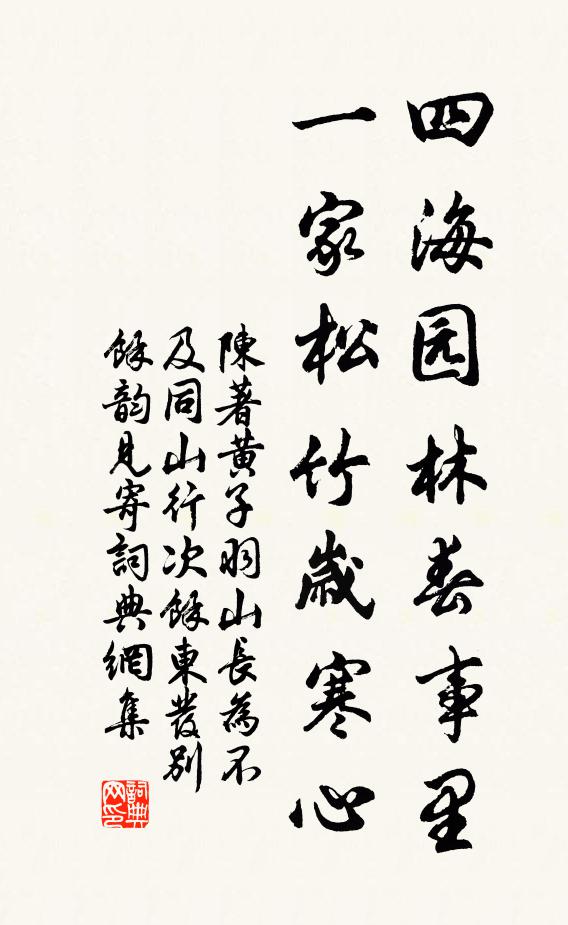 四海园林春事里
一家松竹嵗寒心
陳著黄子羽山長為不
及同山行次餘東發別
餘韵見寄詞典網集
詞典
网印